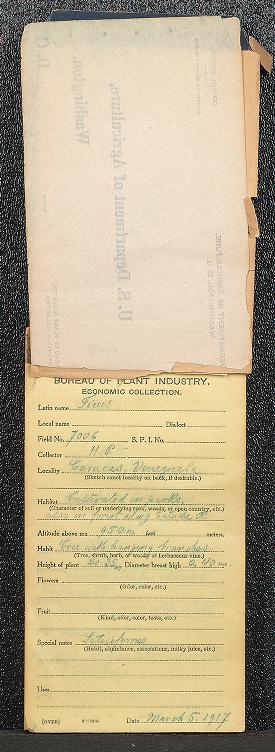 Washington,
U. S. Department of Agriculture,
WASHINGTON, D. C.
DEPARTMENT OF AGRICULTURE
BUREAU OF PLANT INDUSTRY.
ECONOMIC COLLECTION.
Latin name Ficus
Local name Dialect
Field No. 7006 S. P. I. No.
Collector H. P.
Locality Caracas, Venezuela
(Sketch exact locality on back, if desirable.)
Habitat Cultivated in parks,
(Character of soil or underlying rock, woods, or open country, etc.)
also in forest along
Altitude above sea 950 m feet meters.
Habit Tree with hanging branches
(Tree, shrub, herb, of woody or herbaceous vine.)
Height of plant Diameter breast high 0,40 m.
Flowers
(Odor, color, etc.)
Fruit
(Kind, odor, color, taste, etc.)
Special notes
(Habit, abundance, associations, milky juice, etc.)
Uses
[OVER] Date March 5. 1917